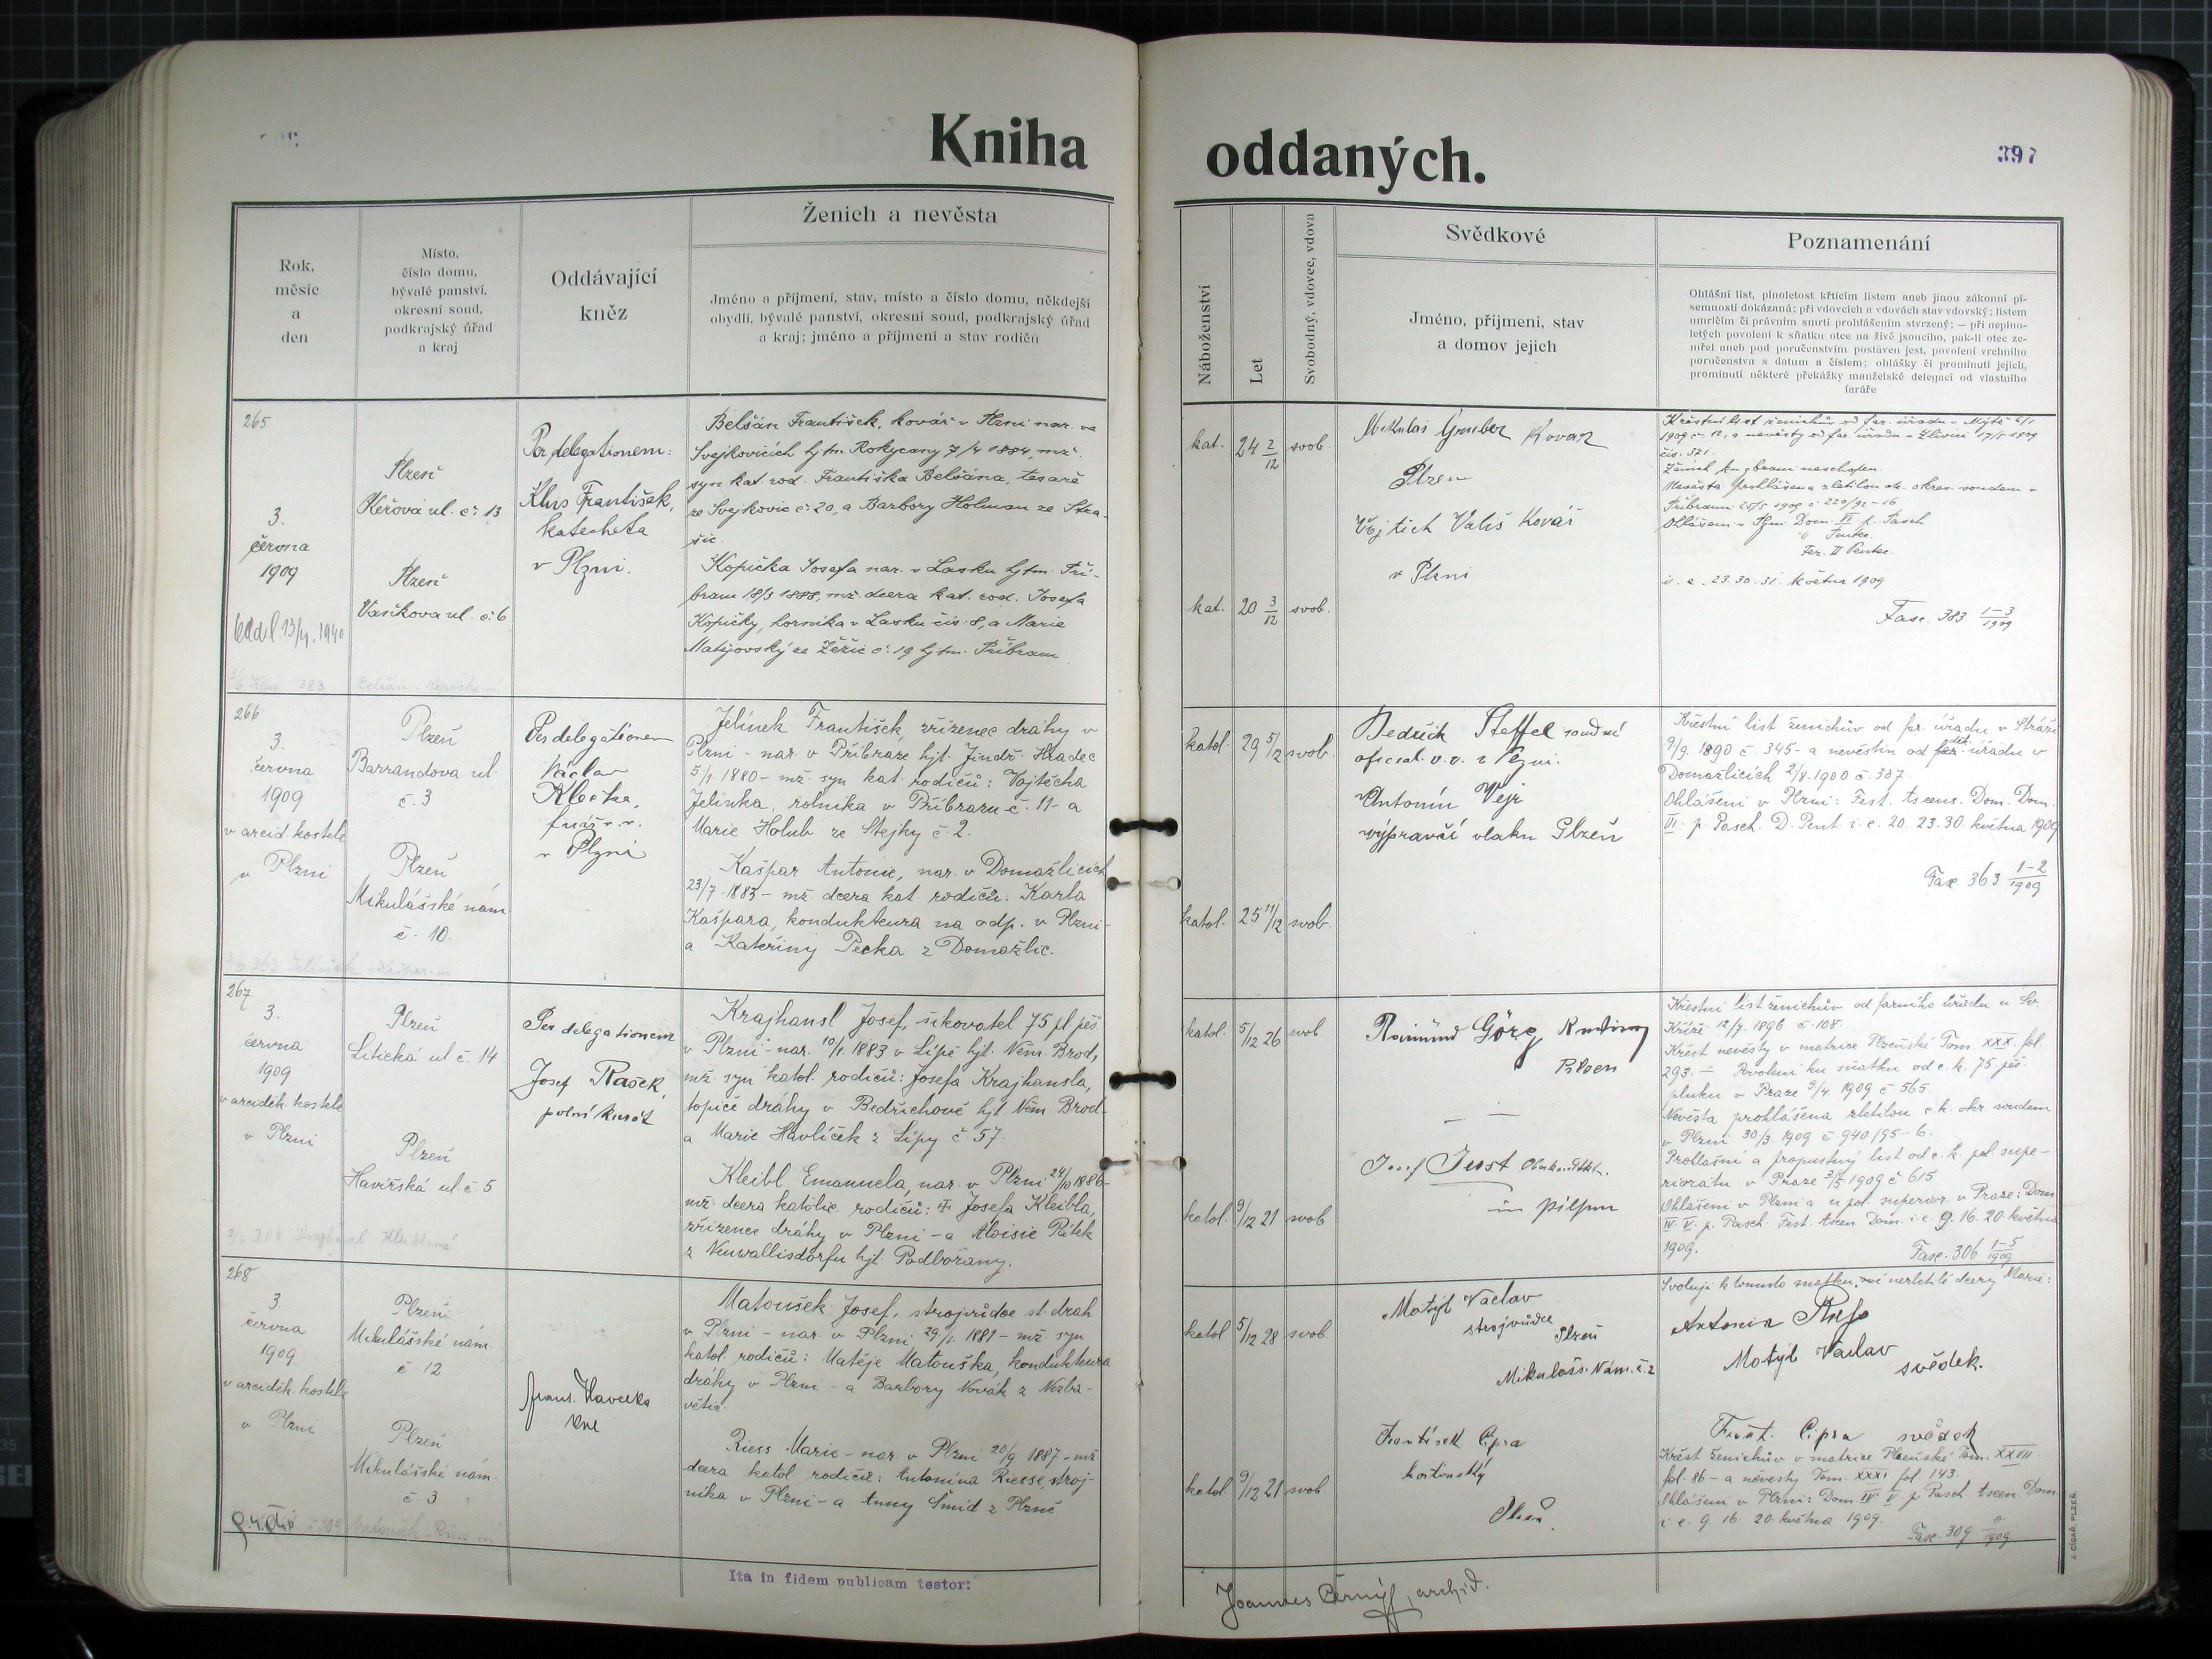 Kniha oddaných.
397
Rok,
měsíc
a
den
Místo,
číslo domu,
bývalé panství,
okresní soud,
podkrajský úřad
a kraj
Oddávající
kněz
Ženich a nevěsta
Jméno a příjmení, stav, místo a číslo domu, někdejší
obydlí, bývalé panství, okresní soud, podkrajský úřad
a kraj; jméno a příjmení a stav rodičů
Náboženství
Let
Svobodný, vdovec, vdova
Svědkové
Jméno, příjmení, stav
a domov jejich
Poznamenání
Ohlášní list, plnoletost křticím listem aneb jinou zákonní pí-
semností dokázaná; při vdovcích a vdovách stav vdovský; listem
umrlčím či právním smrti prohlášením stvrzený; — při neplno-
letých povolení k sňatku otce na živě jsoucího, pak-li otec ze-
mřel aneb pod poručenstvím postaven jest, povolení vrchního
poručenstva s datum a číslem; ohlášky či prominutí jejich,
prominutí některé překážky manželské delegací od vlastního
faráře
265
3.
června
1909
Plzeň
Kéřová ul. č. 13
Plzeň
Vaňkova ul. č. 6
Per delegationem:
Klus František,
katecheta
v Plzni.
Belšán František, kovář v Plzni nar. ve
Svejkovicích hjtm. Rokycany 7/4 1884, mž.
syn kat. rod. Františka Belšána, tesaře
ze Svejkovic č. 20, a Barbory Holman ze Stra-
šic.
Kopička Josefa nar. v Lasku hjtm. Pří-
bram 18/3 1888, mž. dcera kat. rod. Josefa
Kopičky, horníka v Lasku čís. 8, a Marie
Matějovský ze Žěžic č. 19 hjtm. Příbram
kat. 24 2/12 svob.
kat. 20 3/12 svob.
Mikuláš Gruber Kovar
Plzen
Vojtěch Vališ Kovář
v Plzni
Křestní list ženichův od far. úřadu v Mýtě
1909 č. 12, a nevěsty od far. úřadu 17/5 1909
čís. 321.
Ženich ku zbrani neschopen.
Nevěsta prohlášena zletilou ok. okres. soudem v
Příbrami 25/5 1909 č. 220/92-16
Ohlášeni v Plzni Dom. VI p. Pasch
Pentec.
Fer. II Pentec.
i. e. 23. 30. 31. květen 1909
Fasc. 383 1-3/1909
266
3.
června
1909
v arcid. kostele
v Plzni
Plzeň
Barrandova ul.
č. 3
Plzeň
Mikulášské nám.
č. 10.
Per delegationem
Václav
v Plzni
Jelínek František, zřízenec dráhy v
Plzni - nar. v Příbraze hjt. Jindř. Hradec
5/1. 1880 - mž. syn kat. rodičů: Vojtěcha
Jelínka, rolníka v Příbrazu č. 11 - a
Marie Holub ze Stejky č. 2.
Kašpar Antonie, nar. v Domažlicích
23/7. 1883 - mž. dcera kat. rodičů: Karla
Kašpara, kondukteura na odp. v Plzni -
a Kateřiny Pecka z Domažlic.
katol. 29 5/12 svob.
katol. 25 11/12 svob.
Bedřich Steffel soudní
oficial. v. v. v Plzni.
Antonín Vejr
výpravčí vlaku Plzeň
Křestní list ženichův od far. úřadu v Stráži
9/9. 1890 č. 345 - a nevěstin od děk. úřadu v
Domažlicích 2/8. 1900 č. 307.
Ohlášeni v Plzni: Fest. Ascens. Dom. Dom.
VI. p. Pasch. D. Pent. i. e. 20. 23. 30 května 1909
Fasc. 363 1-2/1909
267
3.
června
1909
v arciděk. kostele
v Plzni
Plzeň
Litická ul. č. 14
Plzeň
Havířská ul. č. 5
Per delegationem
Josef Rašek,
polní kurát
Krajhansl Josef, šikovatel 75 pl. pěš.
v Plzni - nar. 10/1. 1883 v Lípě hjt. Něm. Brod,
mž. syn katol. rodičů: Josefa Krajhansla,
topiče dráhy v Bedřichově hjt. Něm. Brod -
a Marie Havlíček z Lípy č. 57.
Kleibl Emanuela, nar. v Plzni 24/10 1886 -
mž. dcera katolic. rodičů: Josefa Kleibla,
zřízence dráhy v Plzni - a Aloisie Pítek
z Neuwallisdorfu hjt. Podbořany.
katol. 5/12 26 svob
katol. 9/12 21 svob
Raimund Görg
Pilsen
Josef Just
in Pilsen
Křestní list ženichův od farního úřadu u Sv.
Kříže 12/7. 1896 č. 108.
Křest nevěsty v matrice Plzeňské Tom. XXX. fol.
293. - Povolení ku sňatku od c. k. 75. pěš.
pluku v Praze 9/4 1909 č. 565.
Nevěsta prohlášena zletilou c. k. okr. soudem
v Plzni 30/3 1909 č. 940/95-6.
Prohlašní a propustný list od c. k. pol. supe-
riorátu v Praze 3/5 1909 č. 615
Ohlášeni v Plzni a u pol. superior. v Praze: Dom.
IV. V. p. Pasch. Fest. Ascen. Dom. i. e. 9. 16. 20. května
1909.
Fasc. 306 1-5/1909
268
3
června
1909
v arciděk. kostele
v Plzni
Plzeň
Mikulášské nám.
č. 12
Plzeň
Mikulášské nám.
č. 3
Matoušek Josef, strojvůdce st. drah
v Plzni - nar. v Plzni 29/1. 1881 - mž. syn
katol. rodičů: Matěje Matouška, kondukteura
dráhy v Plzni - a Barbory Novák z Nezba-
větic.
Riess Marie - nar. v Plzni 20/9 1887 - mž.
dcera katol. rodičů: Antonína Riesse, stroj-
níka v Plzni - a Anny Šmíd z Plzně
katol 5/12 28 svob.
katol 9/12 21 svob
Motýl Václav
strojvůdce
Plzeň
Mikulášs. Nám. č. 2
František Cipra
hostinský
Plzeň.
Svoluji k tomuto sňatku své nezletilé dcery Marie:
Antonín
Motýl Václav
svědek.
Frant. Cipra svědek
Křest ženichův v matrice Plzeňské Tom. XXVII.
fol. 86 - a nevěsty Tom. XXXI fol. 143.
Ohlášeni v Plzni: Dom. IV. V. p. Pasch. Ascen. Dom.
i. e. 9. 16. 20. května 1909.
Fasc. 309
Ita in fidem publicam testor:
Joannes Černý, archid.
J. CÍSAŘ, PLZEŇ.